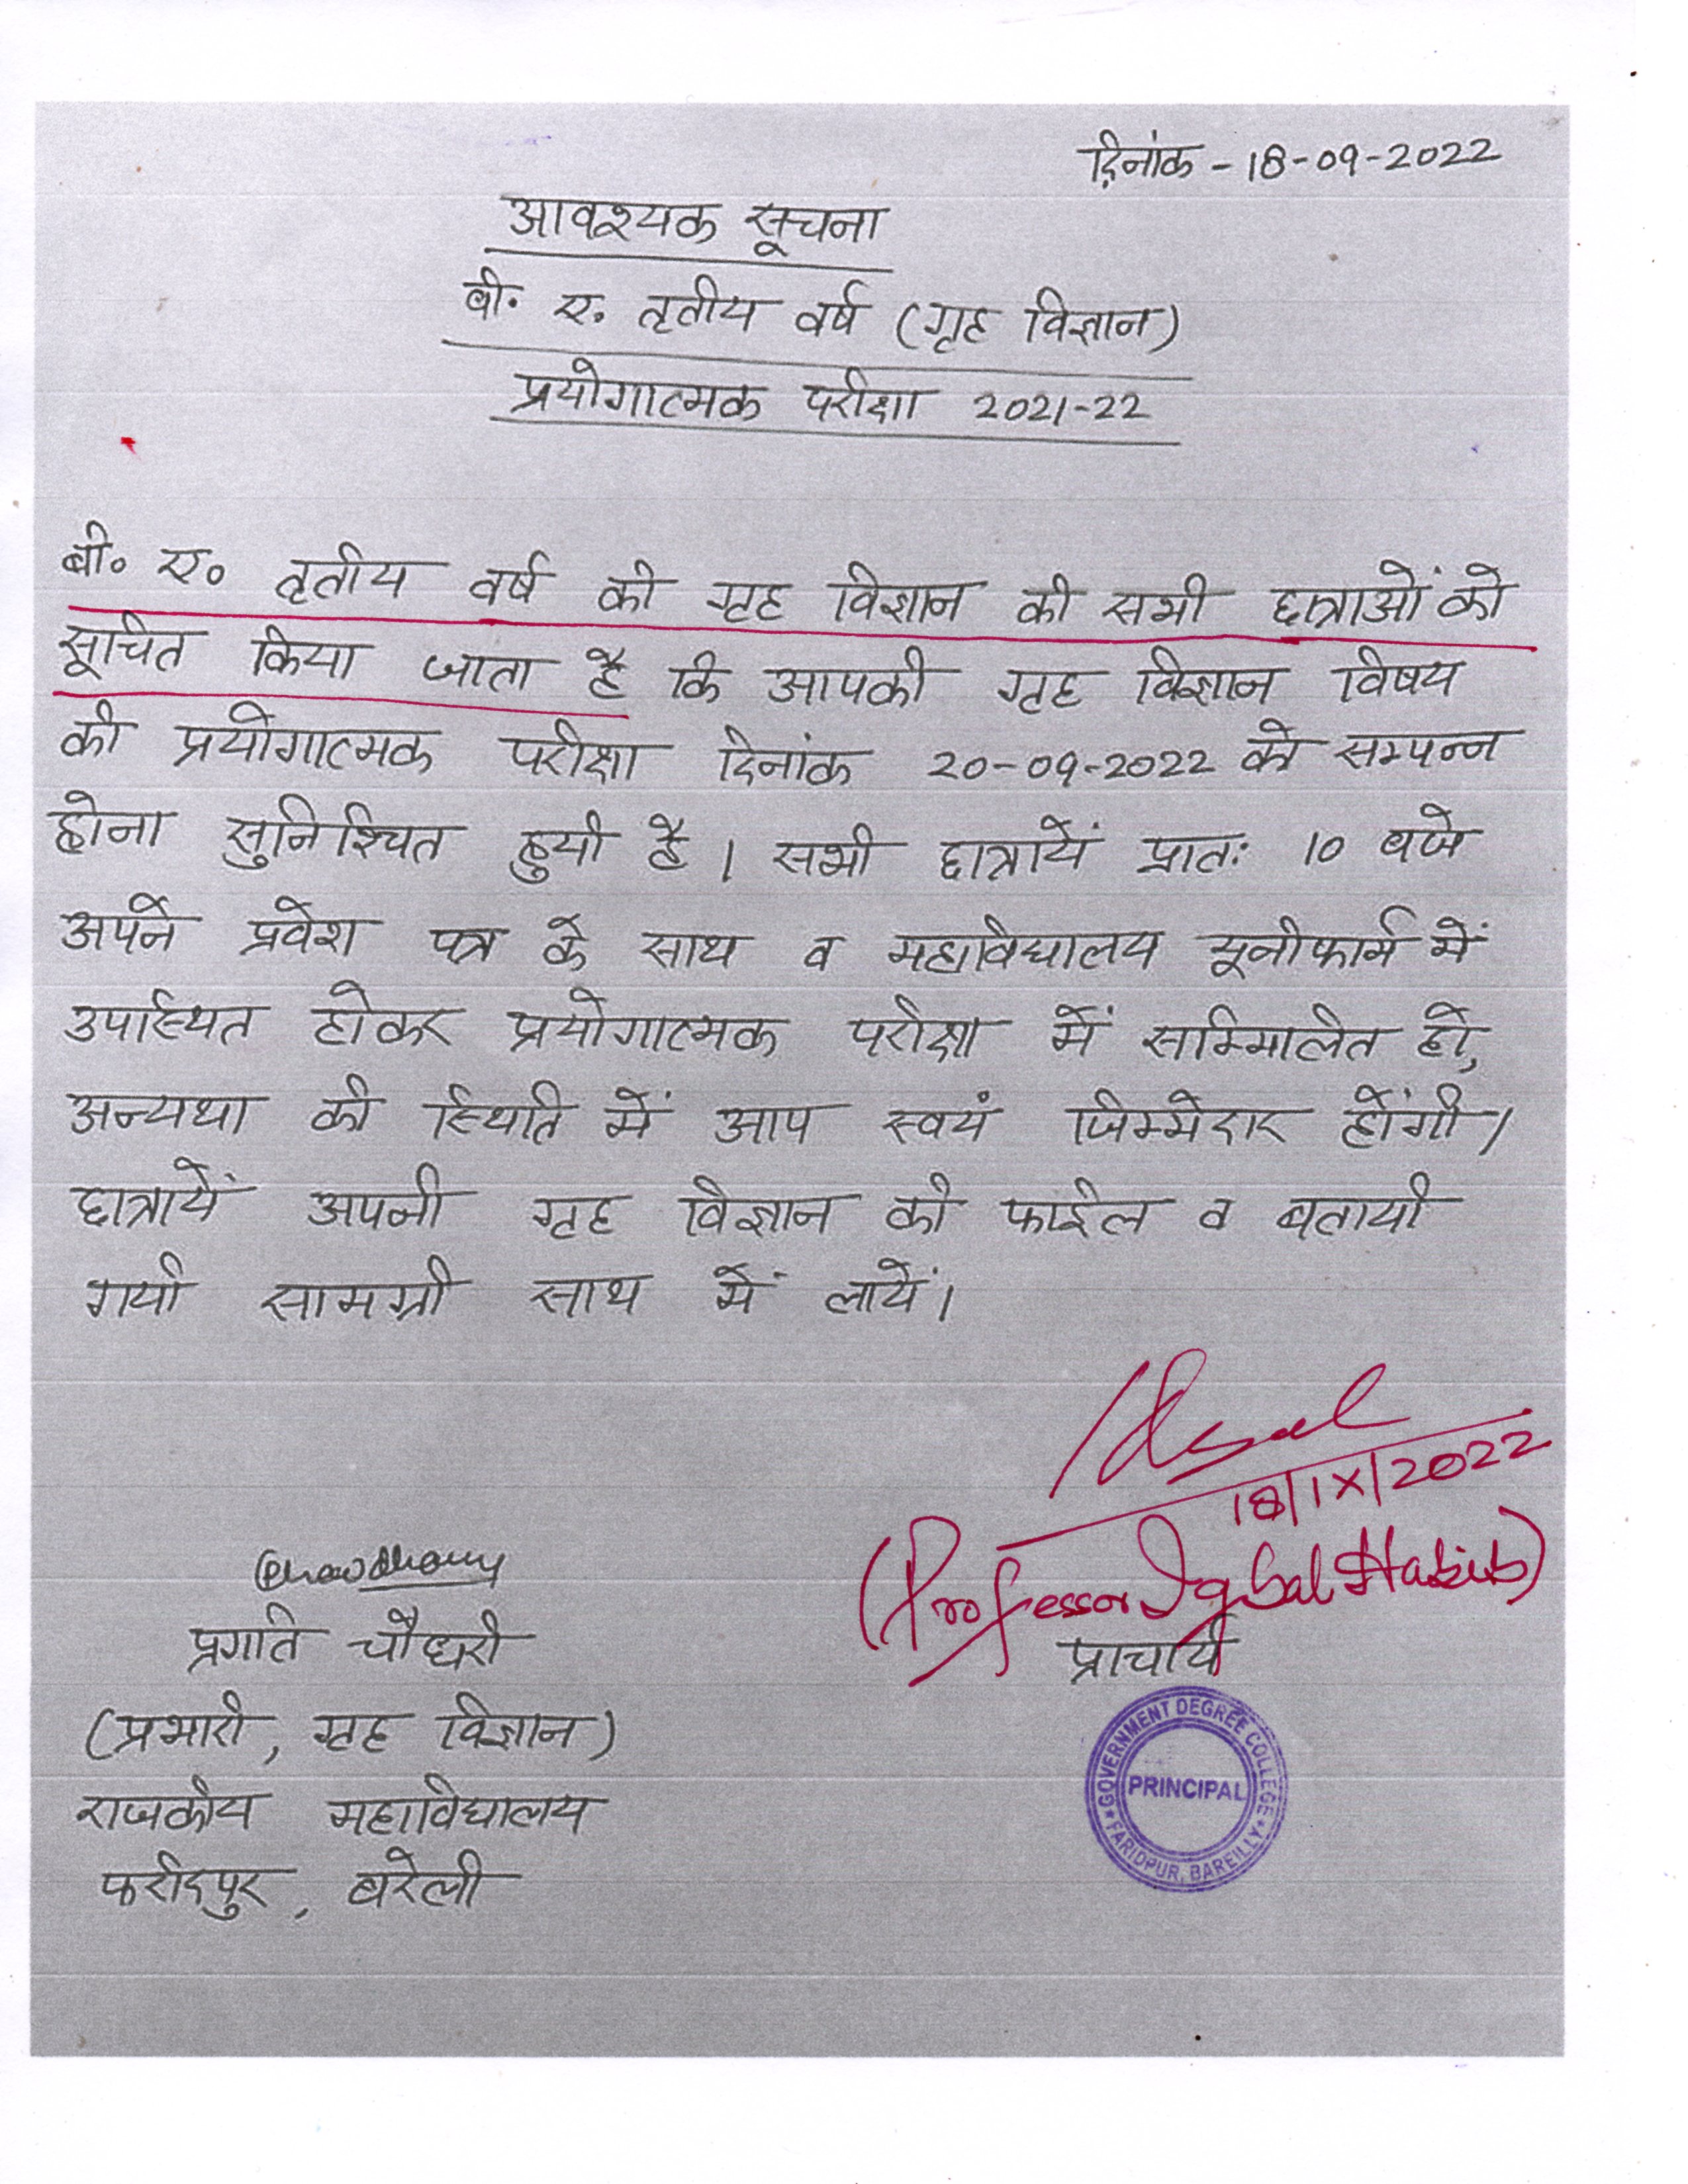 दिनांक - 18-09-2022
आवश्यक सूचना
बी. ए. तृतीय वर्ष (गृह विज्ञान)
प्रयोगात्मक परीक्षा 2021-22
बी० ए० तृतीय वर्ष की गृह विज्ञान की सभी छात्राओं को
सूचित किया जाता है कि आपकी गृह विज्ञान विषय
की प्रयोगात्मक परीक्षा दिनांक 20-09-2022 को सम्पन्न
होना सुनिश्चित हुयी है। सभी छात्रायें प्रातः 10 बजे
अपने प्रवेश पत्र के साथ व महाविद्यालय यूनीफार्म में
उपस्थित होकर प्रयोगात्मक परीक्षा में सम्मिलित हों,
अन्यथा की स्थिति में आप स्वयं जिम्मेदार होंगी।
छात्रायें अपनी गृह विज्ञान की फाईल व बतायी
गयी सामग्री साथ में लायें।
18/IX/2022
(Professor Iqbal Habib)
प्राचार्य
GOVERNMENT DEGREE COLLEGE
PRINCIPAL
FARIDPUR, BAREILLY
Chowdhary
प्रगति चौधरी
(प्रभारी, गृह विज्ञान)
राजकीय महाविद्यालय
फरीदपुर, बरेली